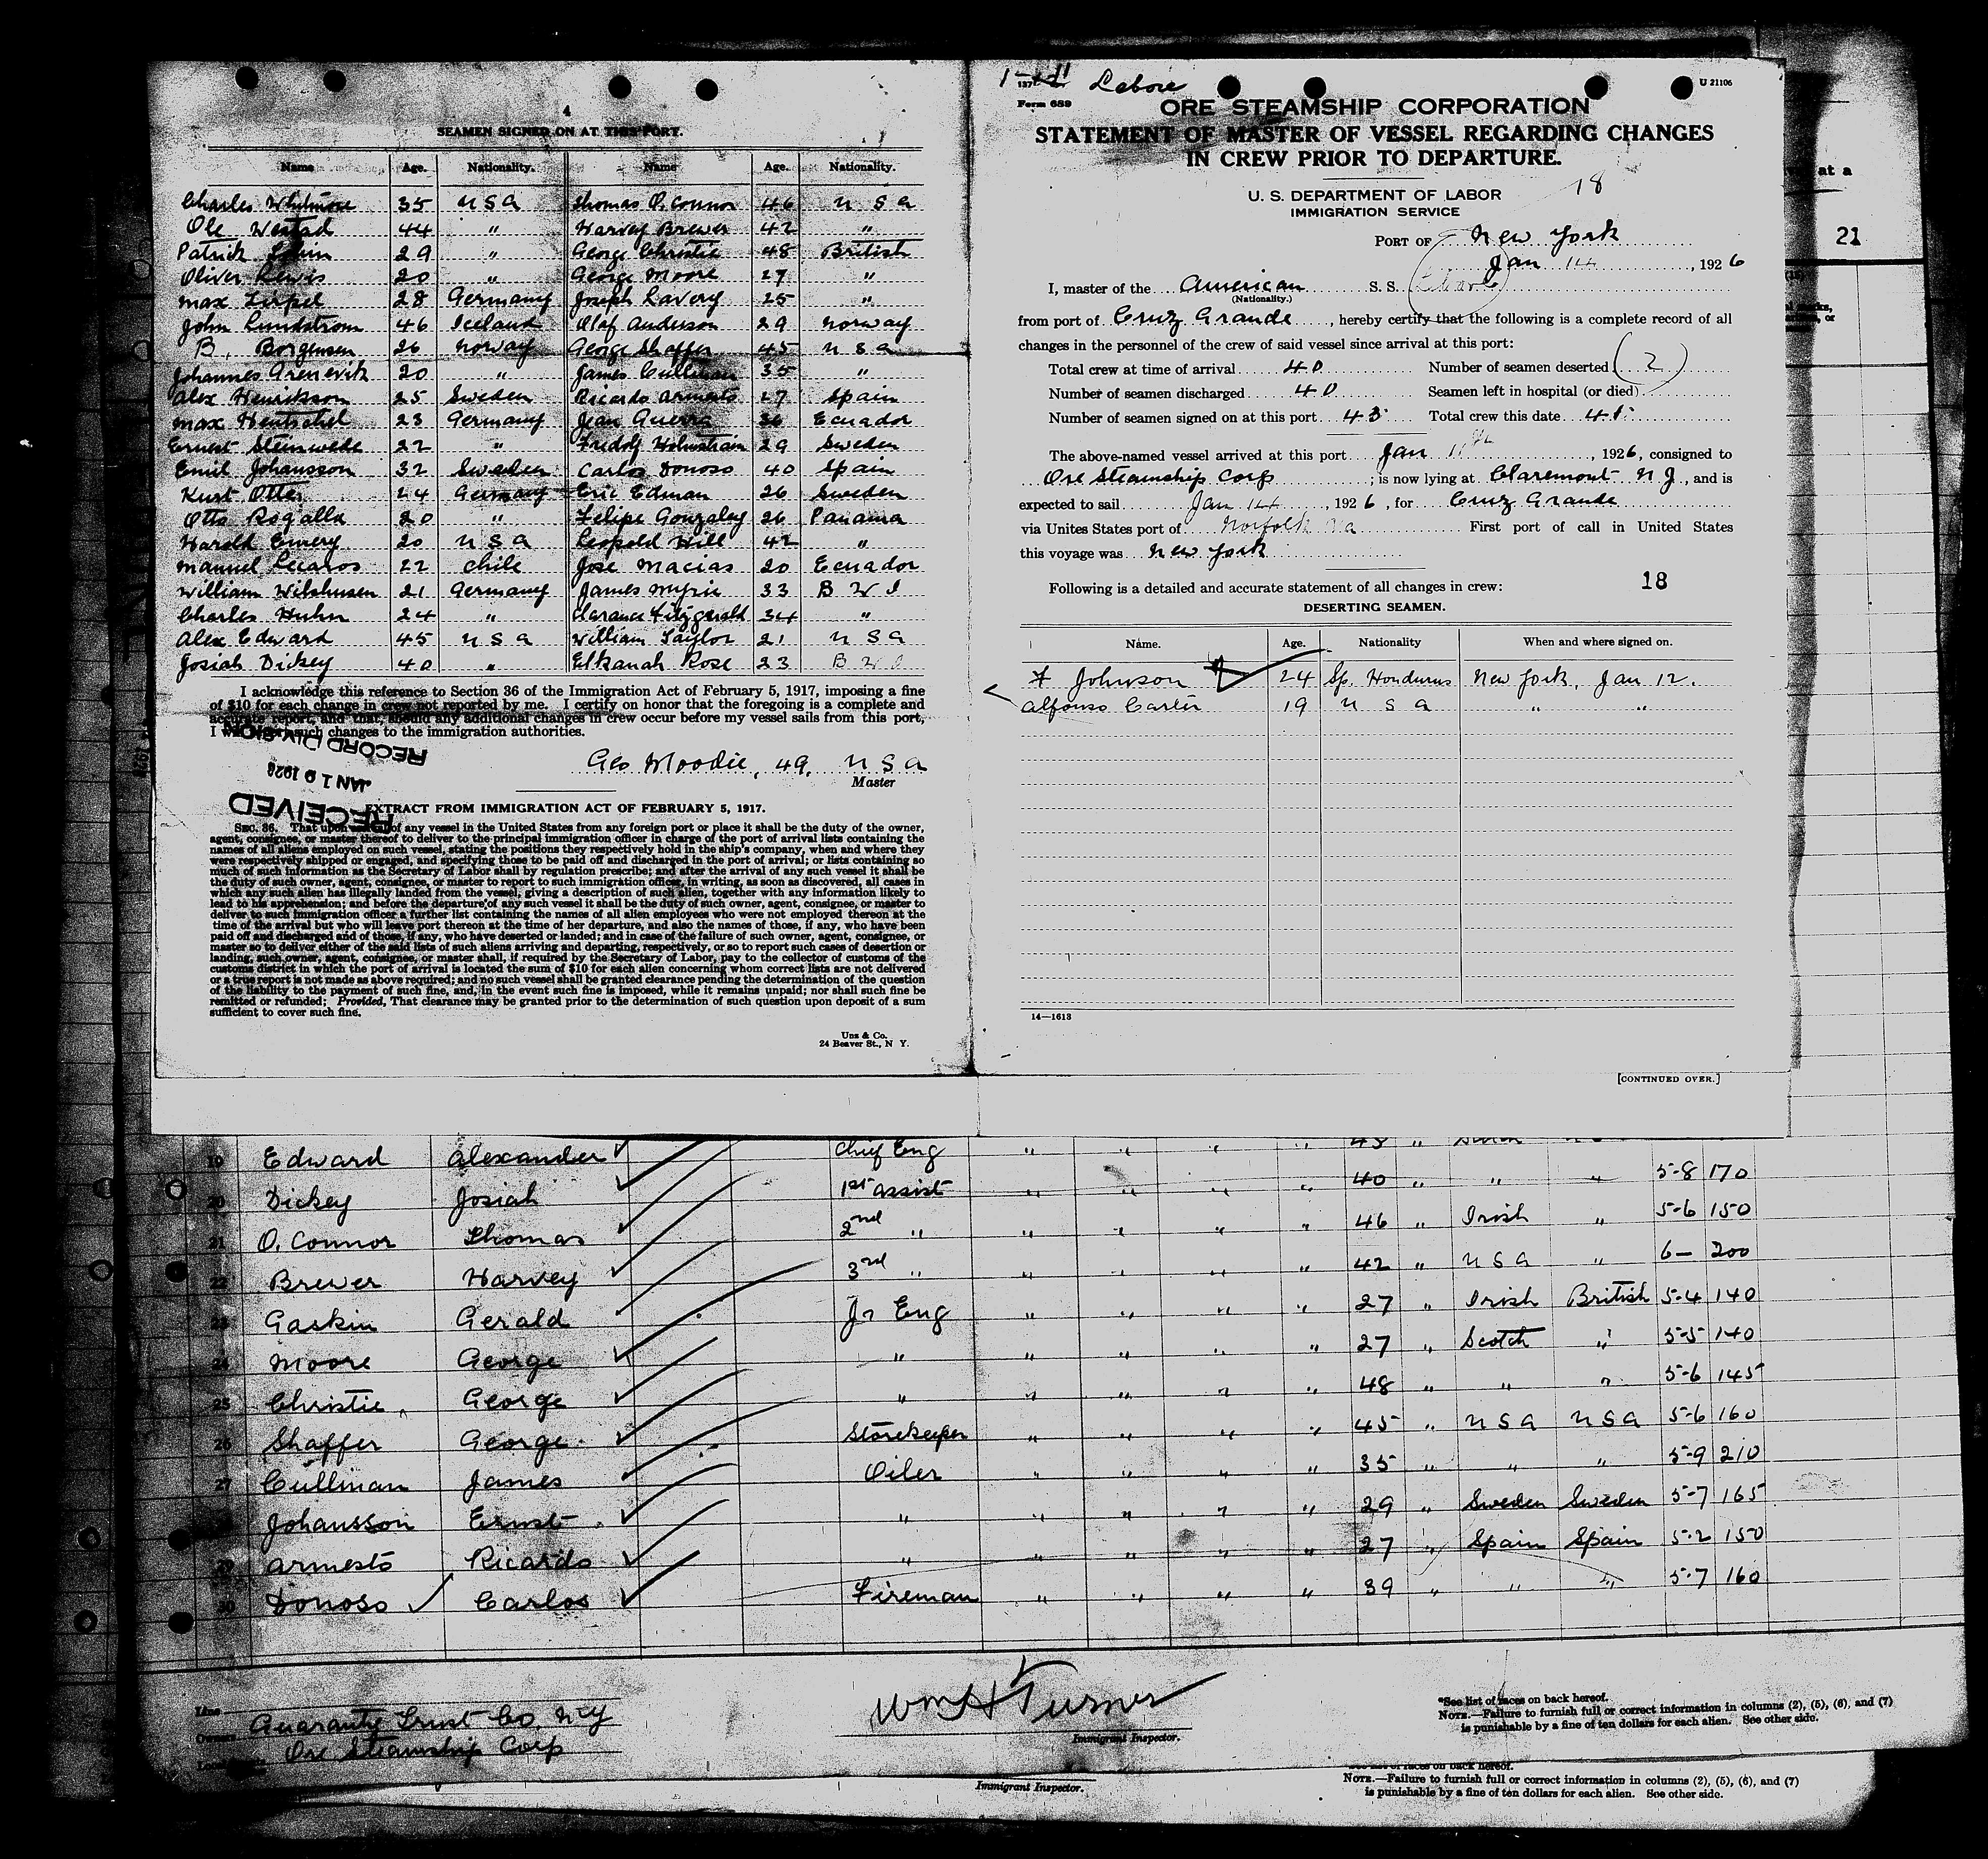 4
SEAMEN SIGNED ON AT THIS PORT.
Name Age. Nationality. Name Age. Nationality.
Charles Whitmore 35 U S A Thomas O. Connor 46 U S A
Ole Westad 44 " Harvey Brewer 42 "
Patrick 29 " George Christie 48 British
Oliver Lewis 20 " George Moore 27 "
Max 28 Germany Joseph Lavery 25 "
John Lundstrom 46 Iceland Olaf Anderson 29 Norway
B. Borgensen 26 Norway George Shaffer 45 U S A
Johannes 20 " James Cullinan 35 "
Alex Henriksson 25 Sweden Ricardo Armesto 27 Spain
Max Hentschel 23 Germany Juan Guerra 36 Ecuador
Ernest Steinwede 22 " Fridolf 29 Sweden
Emil Johansson 32 Sweden Carlos Donoso 40 Spain
Kurt Otter 24 Germany Eric Edman 26 Sweden
Otto Rogalla 20 " Felipe Gonzaley 26 Panama
Harold Emery 20 U S A Leopold Hill 42 "
Manuel Lecaros 22 Chile Jose Macias 20 Ecuador
William Wilshusen 21 Germany James Myrie 33 B W I
Charles Huhn 24 " Clarance Fitzgerald 34 "
Alex Edward 45 U S A William Taylor 21 U S A
Josiah Dickey 40 " Elkanah Rose 23 B W I
I acknowledge this reference to Section 36 of the Immigration Act of February 5, 1917, imposing a fine
of $10 for each change in crew not reported by me. I certify on honor that the foregoing is a complete and
accurate report, and that, should any additional changes in crew occur before my vessel sails from this port,
I will report such changes to the immigration authorities.
RECORD DIVISION
JAN 19 1926
RECEIVED
Geo Moodie, 49, U S A
Master
EXTRACT FROM IMMIGRATION ACT OF FEBRUARY 5, 1917.
SEC. 36. That upon arrival of any vessel in the United States from any foreign port or place it shall be the duty of the owner,
agent, consignee, or master thereof to deliver to the principal immigration officer in charge of the port of arrival lists containing the
names of all aliens employed on such vessel, stating the positions they respectively hold in the ship's company, when and where they
were respectively shipped or engaged, and specifying those to be paid off and discharged in the port of arrival; or lists containing so
much of such information as the Secretary of Labor shall by regulation prescribe; and after the arrival of any such vessel it shall be
the duty of such owner, agent, consignee, or master to report to such immigration officer, in writing, as soon as discovered, all cases in
which any such alien has illegally landed from the vessel, giving a description of such alien, together with any information likely to
lead to his apprehension; and before the departure of any such vessel it shall be the duty of such owner, agent, consignee, or master to
deliver to such immigration officer a further list containing the names of all alien employees who were not employed thereon at the
time of the arrival but who will leave port thereon at the time of her departure, and also the names of those, if any, who have been
paid off and discharged and of those, if any, who have deserted or landed; and in case of the failure of such owner, agent, consignee, or
master so to deliver either of the said lists of such aliens arriving and departing, respectively, or so to report such cases of desertion or
landing, such owner, agent, consignee, or master shall, if required by the Secretary of Labor, pay to the collector of customs of the
customs district in which the port of arrival is located the sum of $10 for each alien concerning whom correct lists are not delivered
or a true report is not made as above required; and no such vessel shall be granted clearance pending the determination of the question
of the liability to the payment of such fine, and, in the event such fine is imposed, while it remains unpaid; nor shall such fine be
remitted or refunded; Provided, That clearance may be granted prior to the determination of such question upon deposit of a sum
sufficient to cover such fine.
UNZ & CO.
24 Beaver St., N Y.
Lebore
U 21106
Form 689
ORE STEAMSHIP CORPORATION
STATEMENT OF MASTER OF VESSEL REGARDING CHANGES
IN CREW PRIOR TO DEPARTURE.
18
U. S. DEPARTMENT OF LABOR
IMMIGRATION SERVICE
PORT OF New York
Jan 14, 1926
I, master of the American S. S. Lebore
(Nationality.)
from port of Cruz Grande, hereby certify that the following is a complete record of all
changes in the personnel of the crew of said vessel since arrival at this port:
Total crew at time of arrival 40 Number of seamen deserted 2
Number of seamen discharged 40 Seamen left in hospital (or died)
Number of seamen signed on at this port 43 Total crew this date 41
The above-named vessel arrived at this port Jan 11th, 1926, consigned to
Ore Steamship Corp; is now lying at Claremont N J, and is
expected to sail Jan 14, 1926, for Cruz Grande
via Unites States port of Norfolk Va First port of call in United States
this voyage was New York
Following is a detailed and accurate statement of all changes in crew: 18
DESERTING SEAMEN.
Name. Age. Nationality When and where signed on.
F Johnson 24 Sp. Honduras New York, Jan 12.
Alfonso Carter 19 U S A " "
14—1613
[CONTINUED OVER.]
at a
21
19 Edward Alexander Chief Eng " " " " 45 "
20 Dickey Josiah 1st Assist " " " " 40 " " " 5-8 170
21 O. Connor Thomas 2nd " " " " " 46 " Irish " 5-6 150
22 Brewer Harvey 3rd " " " " " 42 " U S A " 6— 200
23 Gaskin Gerald Jr Eng " " " " 27 " Irish British 5-4 140
24 Moore George " " " " " 27 " Scotch " 5-5 140
25 Christie, George " " " " " 48 " " " 5-6 145
26 Shaffer George Storekeeper " " " " 45 " U S A U S A 5-6 160
27 Cullinan James Oiler " " " " 35 " " " 5-9 210
28 Johansson Ernst " " " " " 29 " Sweden Sweden 5-7 165
29 Armesto Ricardo " " " " " 27 " Spain Spain 5-2 150
30 Donoso Carlos Fireman " " " " 39 " " " 5-7 160
Line
Owners Guaranty Trust Co. N Y
Ore Steamship Corp
Wm H Turner
Immigrant Inspector.
*See list of races on back hereof.
NOTE.—Failure to furnish full or correct information in columns (2), (5), (6), and (7)
is punishable by a fine of ten dollars for each alien. See other side.
Immigrant Inspector.
NOTE.—Failure to furnish full or correct information in columns (2), (5), (6), and (7)
is punishable by a fine of ten dollars for each alien. See other side.